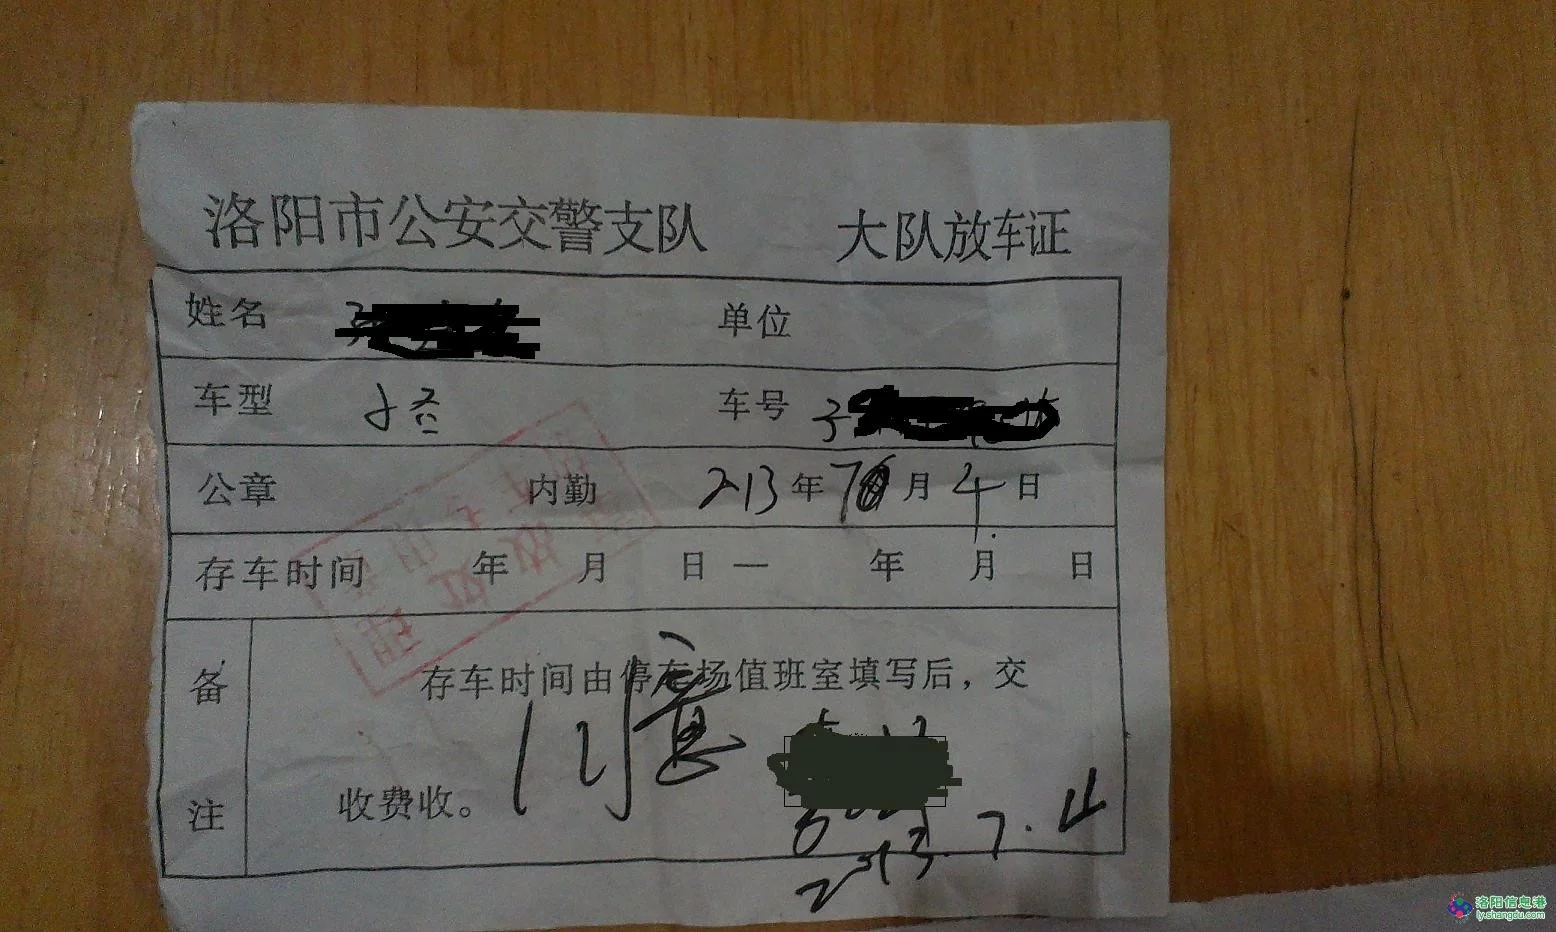 洛阳市公安交警支队 大队放车证
姓名 单位
车型 车号
公章 内勤 2013年7月4日
存车时间 年 月 日 — 年 月 日
备注
存车时间由停车场值班室填写后，交
收费收。
同意
2013.7.4
洛阳信息港
ly.shangdu.com